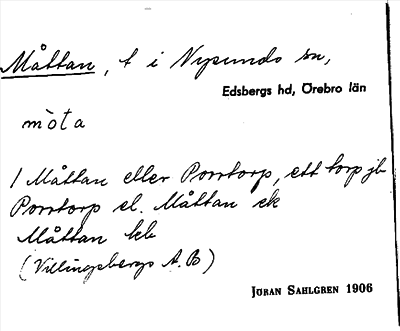 Måttan, t i Nysunds sn,
Edsbergs hd, Örebro län
mòta
1 Måttan eller Porrtorp, ett torp jb
Porrtorp el. Måttan ek
Måttan kb
(Villingsbergs A. B)
JÖRAN SAHLGREN 1906